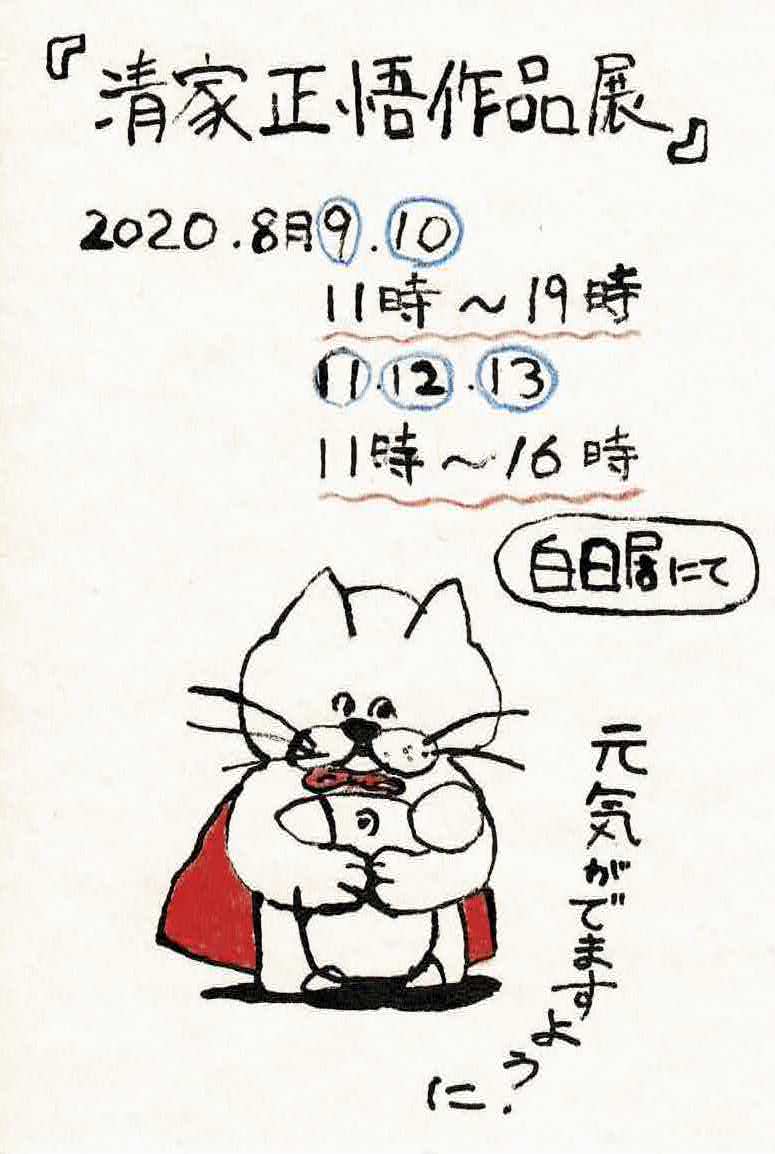 『清家正悟作品展』
2020.8月9.10
11時～19時
11.12.13
11時～16時
白日居にて
元気がでますように